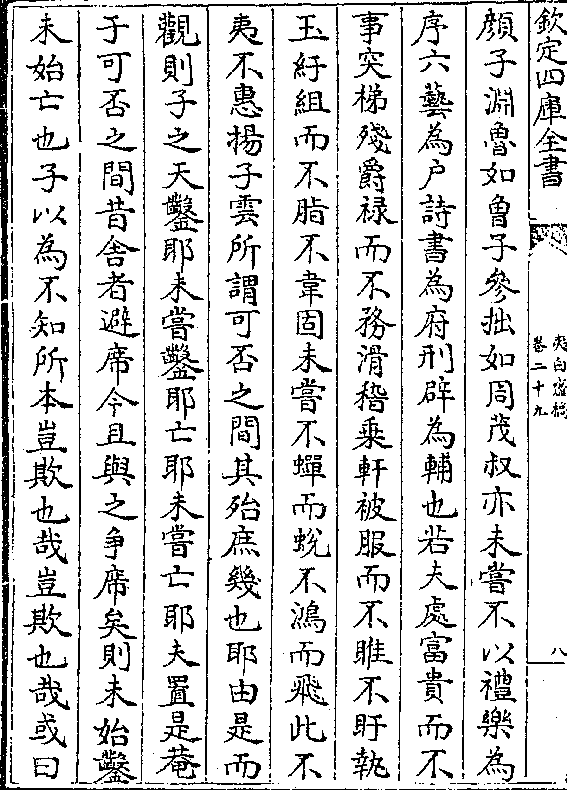 欽定四庫全書
夷白齋稿
卷二十九
八
顔子淵魯如曾子參拙如周茂叔亦未嘗不以禮樂為
序六藝為户詩書為府刑辟為輔也若夫處富貴而不
事突梯殘爵禄而不務滑稽乗軒被服而不睢不盱執
玉紆組而不脂不韋固未嘗不蟬而蛻不鴻而飛此不
夷不惠揚子雲所謂可否之間其殆庶幾也耶由是而
觀則子之天鑿耶未嘗鑿耶亡耶未嘗亡耶夫置是菴
于可否之間昔舎者避席今且與之争席矣則未始鑿
未始亡也子以為不知所本豈欺也哉豈欺也哉或曰